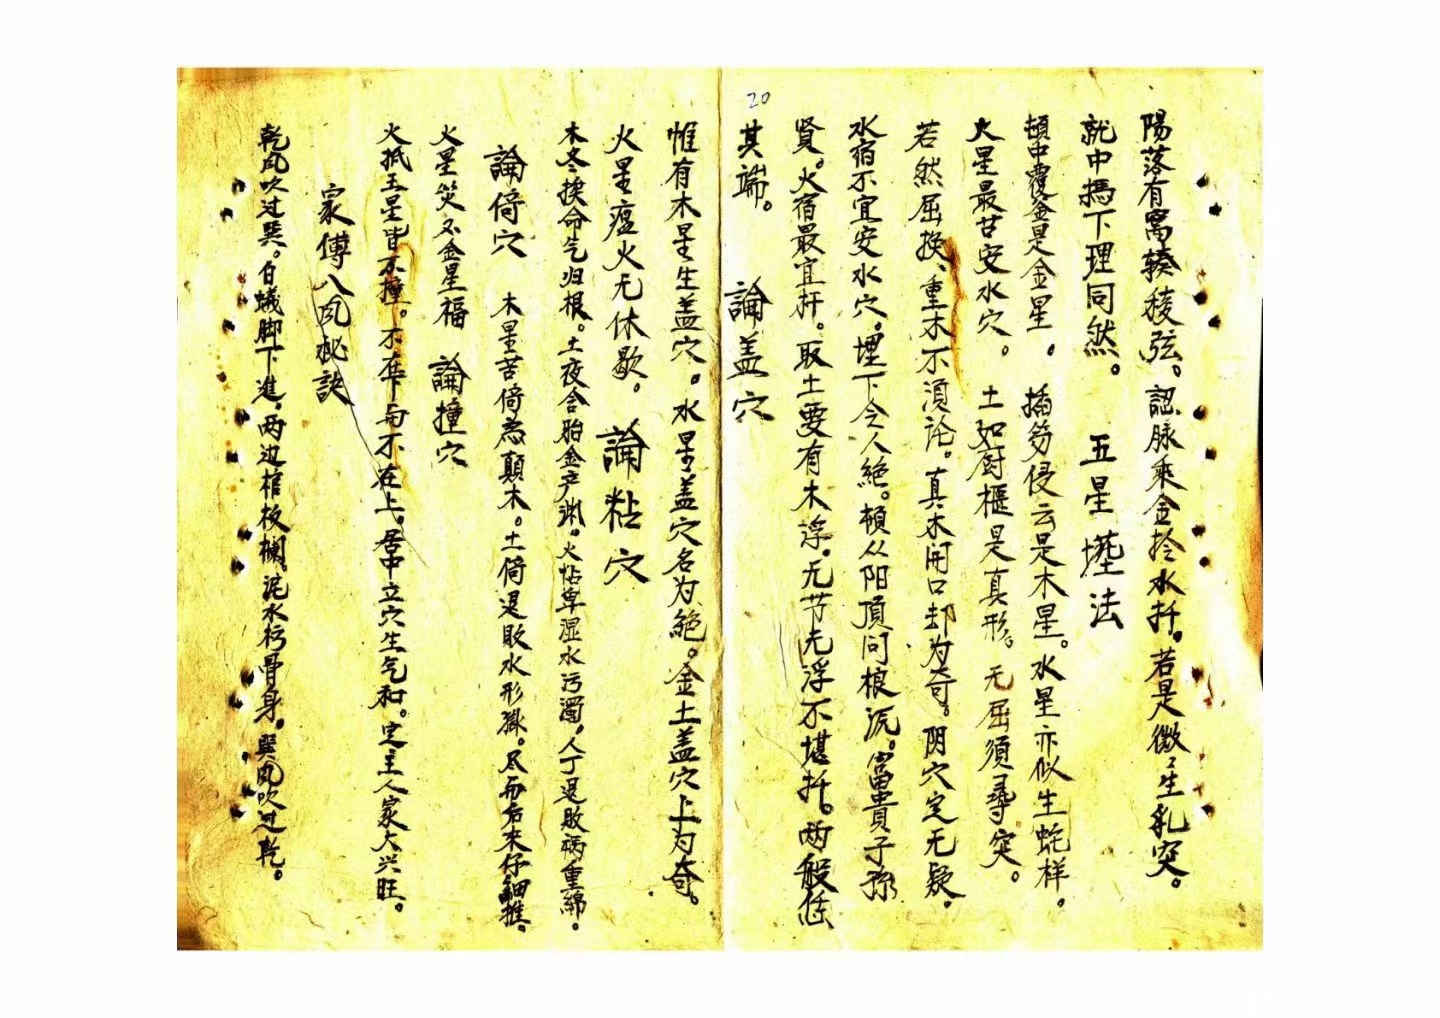 陽落有窩揍稜弦。認脉乘金拎水扦。若是微〻生乳突。
就中撝下理同然。 五星塟法
頓中覆金是金星。 插笏侵云是木星。水星亦似生蛇样。
火星最甘安水穴。 土如厨櫃是真形。无屈須尋突。
若然屈挨、重木不湏论。真木開口却为奇。阴穴定无疑。
水宿不宜安水穴。埋下令人絶。頓从阳頂问根沅。富貴子孫
贤。火宿最宜扦。取土要有木浮。无节无浮不堪扦。两般任
20
其端。 論盖穴
惟有木星生盖穴。水星盖穴名为絶。金土盖穴上为奇。
火星瘟火无休歇。 論粘穴
木冬挨命气归根。土夜含胎金产渊。火帖卑湿水污濁。人丁退敗祸重綿。
論倚穴 木星苦倚为顛木。土倚退敗水形 。尽而后来仔細推。
火星災不金星福 論撞穴
火抵土星皆不撞。不在下与不在上。居中立穴生气和。定主人家大兴旺。
家傳八风秘訣
乾风吹过巽。白蟻脚下進。两边棺板欄。泥水污骨身。巽风吹过乾。